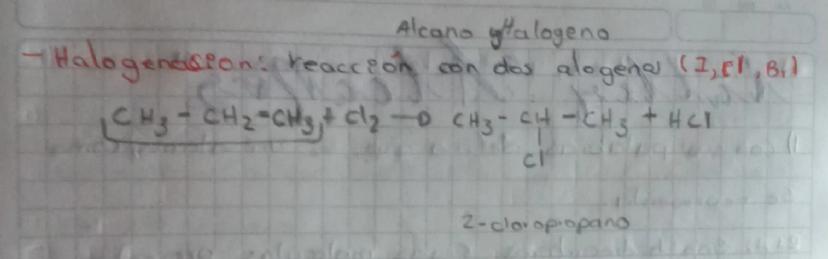 Alcano y Halogeno
- Halogenaseon: reacceón con dos alogenos (I, Cl, Br)
CH3 - CH2-CH3 + Cl2 → CH3 - CH - CH3 + HCl
Cl
2-cloropropano